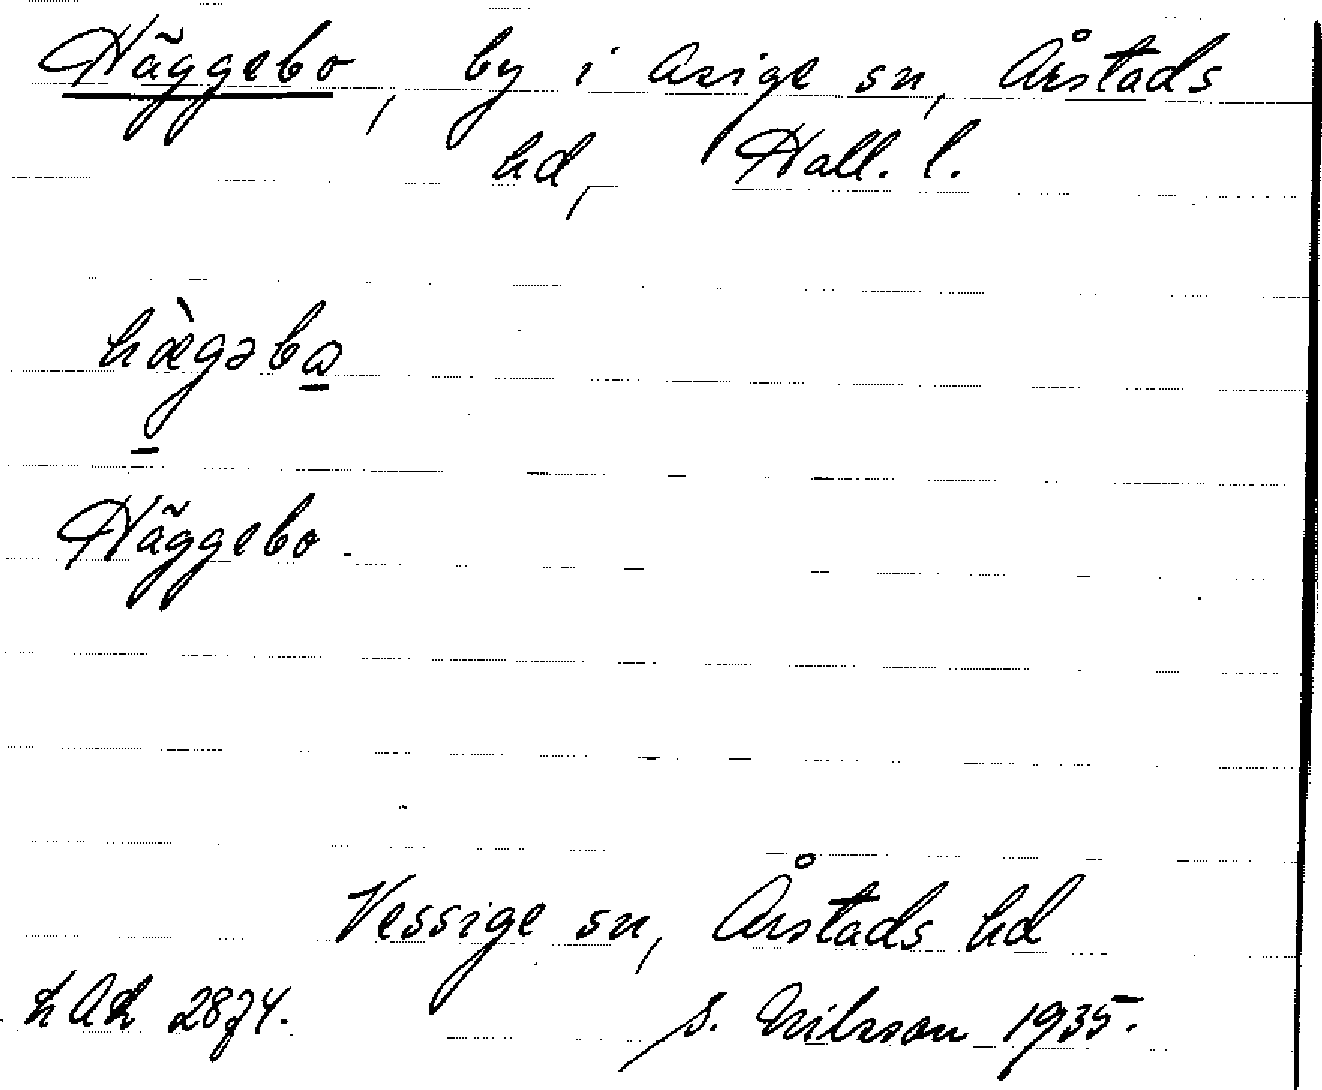 Häggebo, by i Asige sn, Årstads
hd, Hall. l.
hæ̀gəbo
Häggebo.
Vessige sn, Årstads hd
2874.
S. Nilsson 1935.